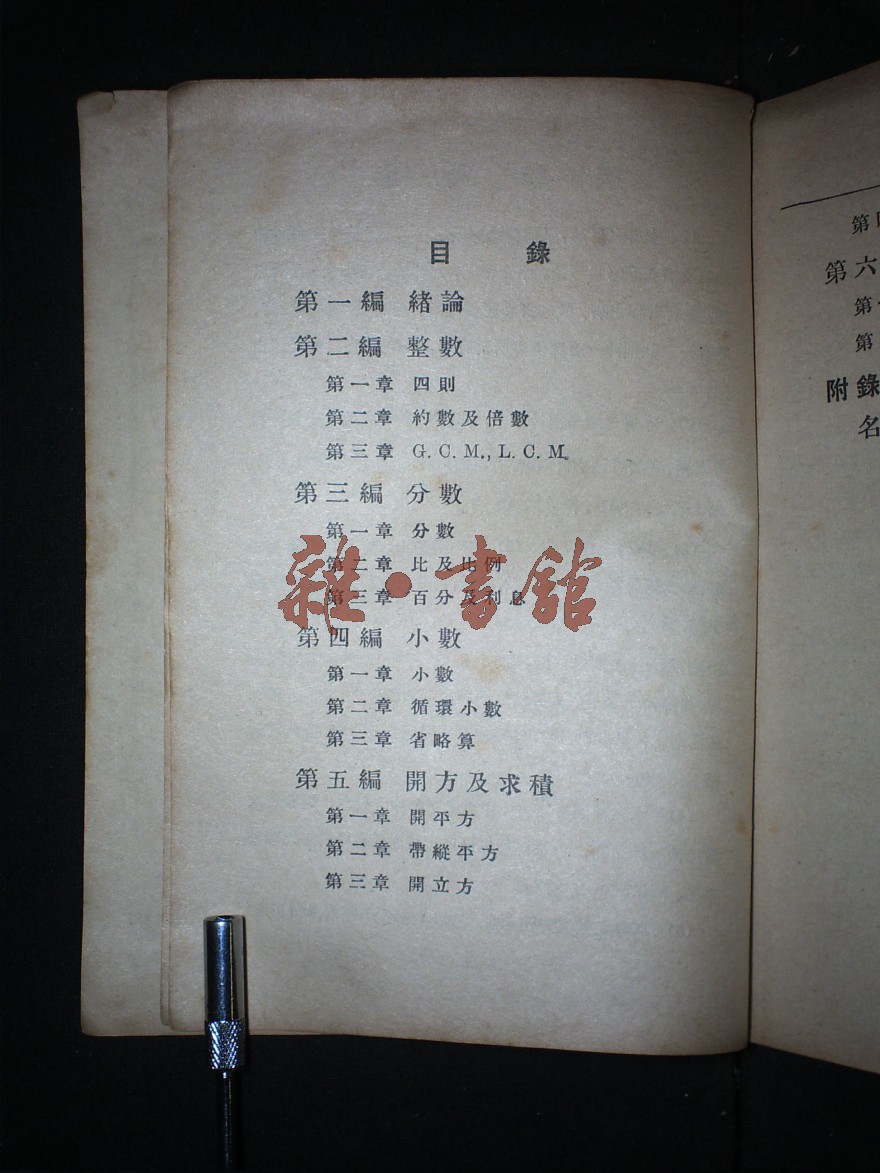 目錄
第一編 緒論
第二編 整數
第一章 四則
第二章 約數及倍數
第三章 G. C. M., L. C. M.
第三編 分數
第一章 分數
第二章 比及比例
第三章 百分及利息
雜·書館
第四編 小數
第一章 小數
第二章 循環小數
第三章 省略算
第五編 開方及求積
第一章 開平方
第二章 帶縱平方
第三章 開立方
第
第六
第
第
附錄
名